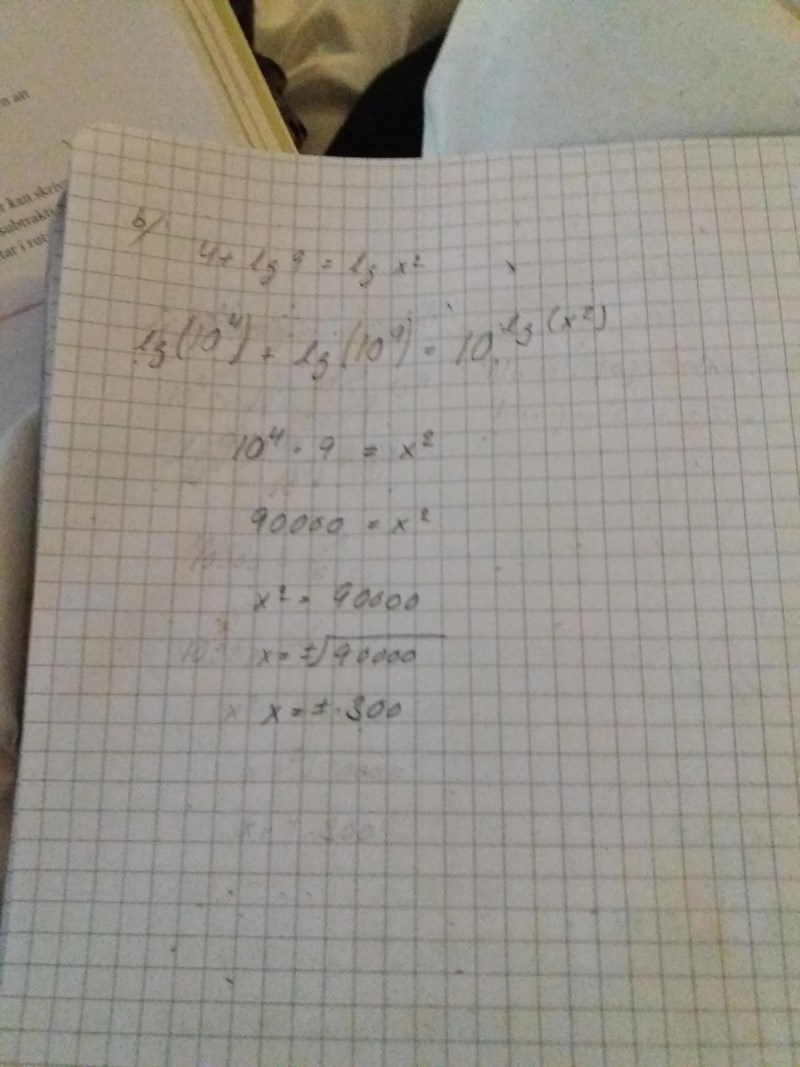 en att
r kan skriv
subtrakti
tar i rut
b/
4 + lg 9 = lg x²
lg(10⁴) + lg(10⁹) = 10^lg(x²)
10⁴ · 9 = x²
90000 = x²
x² = 90000
x = ±√90000
x = ± · 300